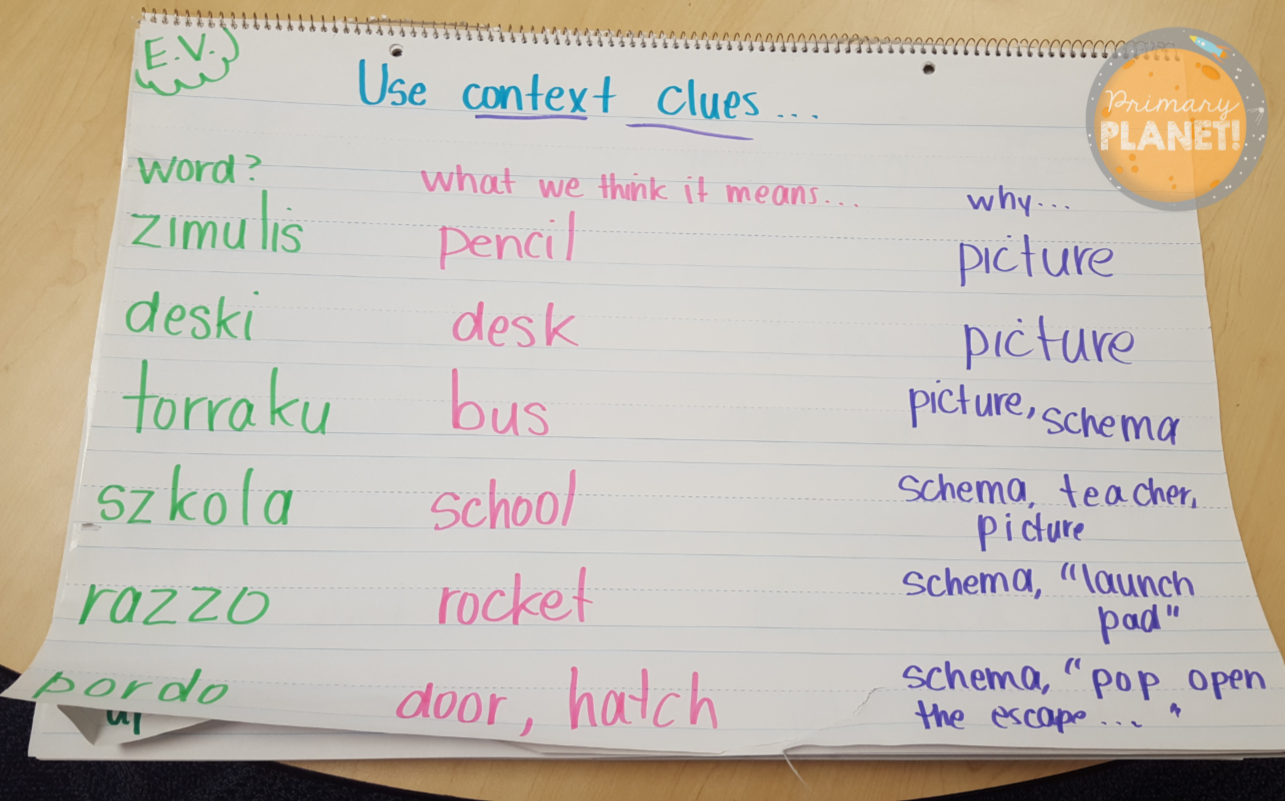 E.V.
Use context clues...
word? what we think it means... why...
zimulis pencil picture
deski desk picture
torraku bus picture, schema
szkola school schema, teacher,
picture
razzo rocket schema, "launch
pad"
pordo door, hatch schema, "pop open
the escape... "
Primary
PLANET!